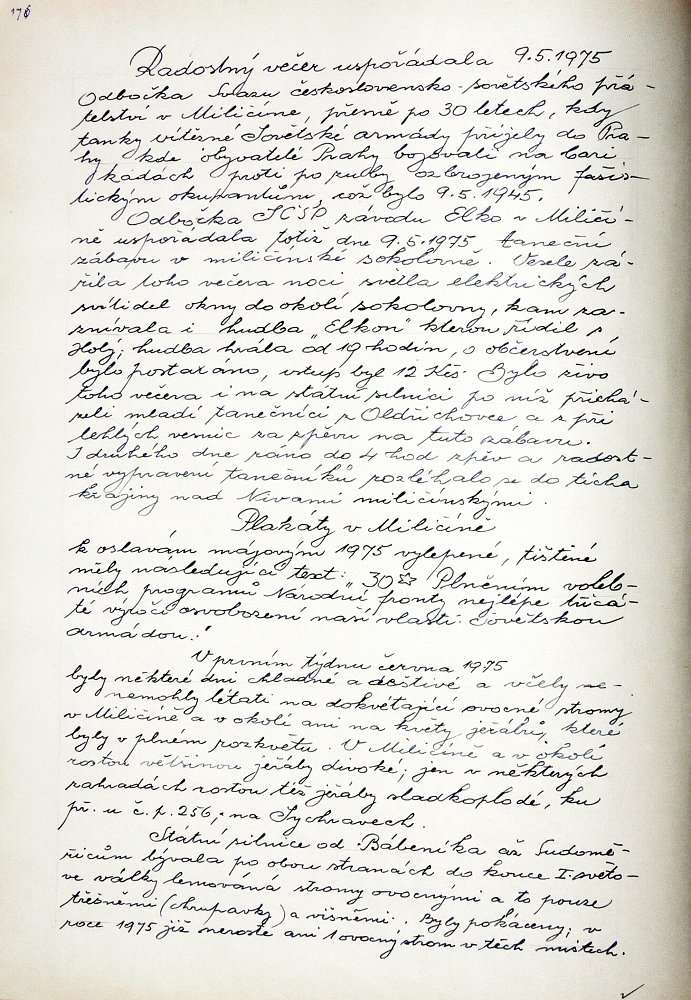 176
Radostný večer uspořádala 9.5.1975
Odbočka Svazu československo-sovětského přá-
telství v Miličíne, přesně po 30 letech, kdy
tanky vítězné Sovětské armády přijely do Pra-
hy kde obyvatelé Prahy bojovali na bari
kádách proti po zuby ozbrojeným fašis-
tickým okupantům, což bylo 9.5.1945.
Odbočka SČSP závodu Elko v Miličí-
ně uspořádala totiž dne 9.5.1975 taneční
zábavu v miličínské sokolovně. Vesele zá-
řila toho večera noci světla elektrických
svítidel okny do okolí sokolovny, kam za-
znívala i hudba „Elkon" kterou řídil s
Holý; hudba hrála od 19 hodin, o občerstvení
bylo postaráno, vstup byl 12 Kčs. Bylo živo
toho večera i na státní silnici po níž přichá-
zeli mladí tanečníci z Oldřichovce a z při
lehlých vesnic za zpěvu na tuto zábavu.
I druhého dne ráno do 4 hod zpěv a radost-
né vypravení tanečníků rozléhalo se do ticha
krajiny nad Nivami miličínskými.
Plakáty v Miličíně
k oslavám májovým 1975 vylepené, tištěné
měly následující text: „30 Plněním voleb-
ních programů Národní fronty nejlépe třicá-
té výročí osvobození naší vlasti Sovětskou
armádou."
V prvním týdnu června 1975
byly některé dni chladné a deštivé a včely ne-
nemohly létati na dokvétající ovocné stromy
v Miličíně a v okolí ani na květy jeřábů, které
byly v plném rozkvětu. V Miličíně a v okolí
rostou většinou jeřáby divoké; jen v některých
zahradách rostou též jeřáby sladkoplodé, ku
př. u č.p. 256, na Sychravech.
Státní silnice od Bábeníka až Sudomě-
řicům bývala po obou stranách do konce I. světo-
vé války lemována stromy ovocnými a to pouze
třešněmi (chrupavky) a višněmi. Byly pokáceny; v
roce 1975 již neroste ani 1 ovocný strom v těch místech.